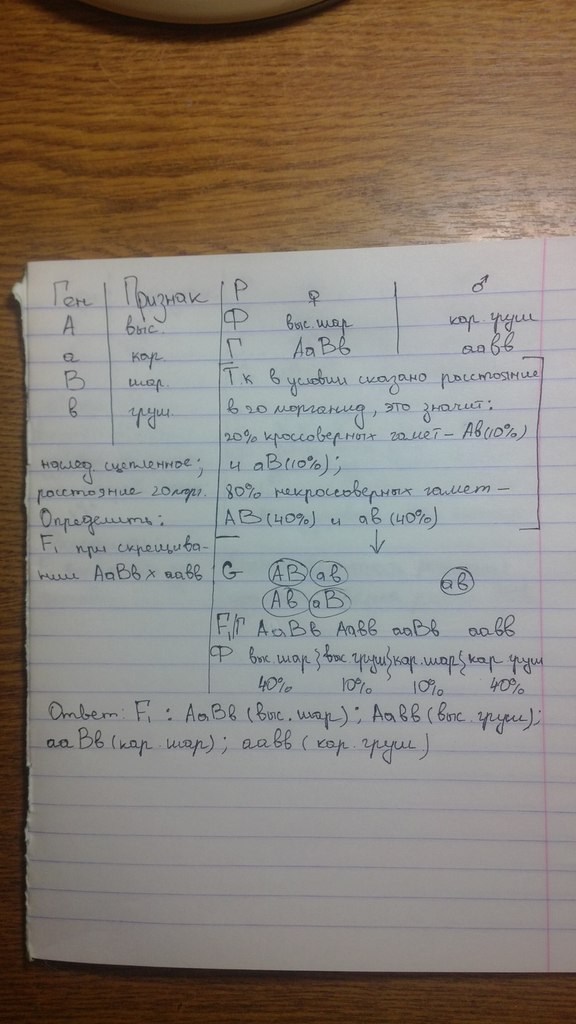 Ген | Признак | P ♀ | ♂
А | выс. | Ф выс. шар | кар. груш
а | кар. | Г АаВв | аавв
В | шар. | Т.к в условии сказано расстояние
в | груш. | в 20 морганид, это значит:
20% кроссоверных гамет – Ав(10%)
наслед сцепленное; | и аВ(10%);
расстояние 20 морг. | 80% некроссоверных гамет –
Определить: | АВ(40%) и ав(40%)
F₁ при скрещива-
нии АаВв х аавв | G АВ ав | ав
Ав аВ
F₁/Г АаВв Аавв ааВв аавв
Ф выс. шар } выс груш } кар. шар { кар груш
40% 10% 10% 40%
Ответ: F₁ : АаВв (выс. шар); Аавв (выс. груш);
ааВв (кар. шар); аавв (кар. груш)